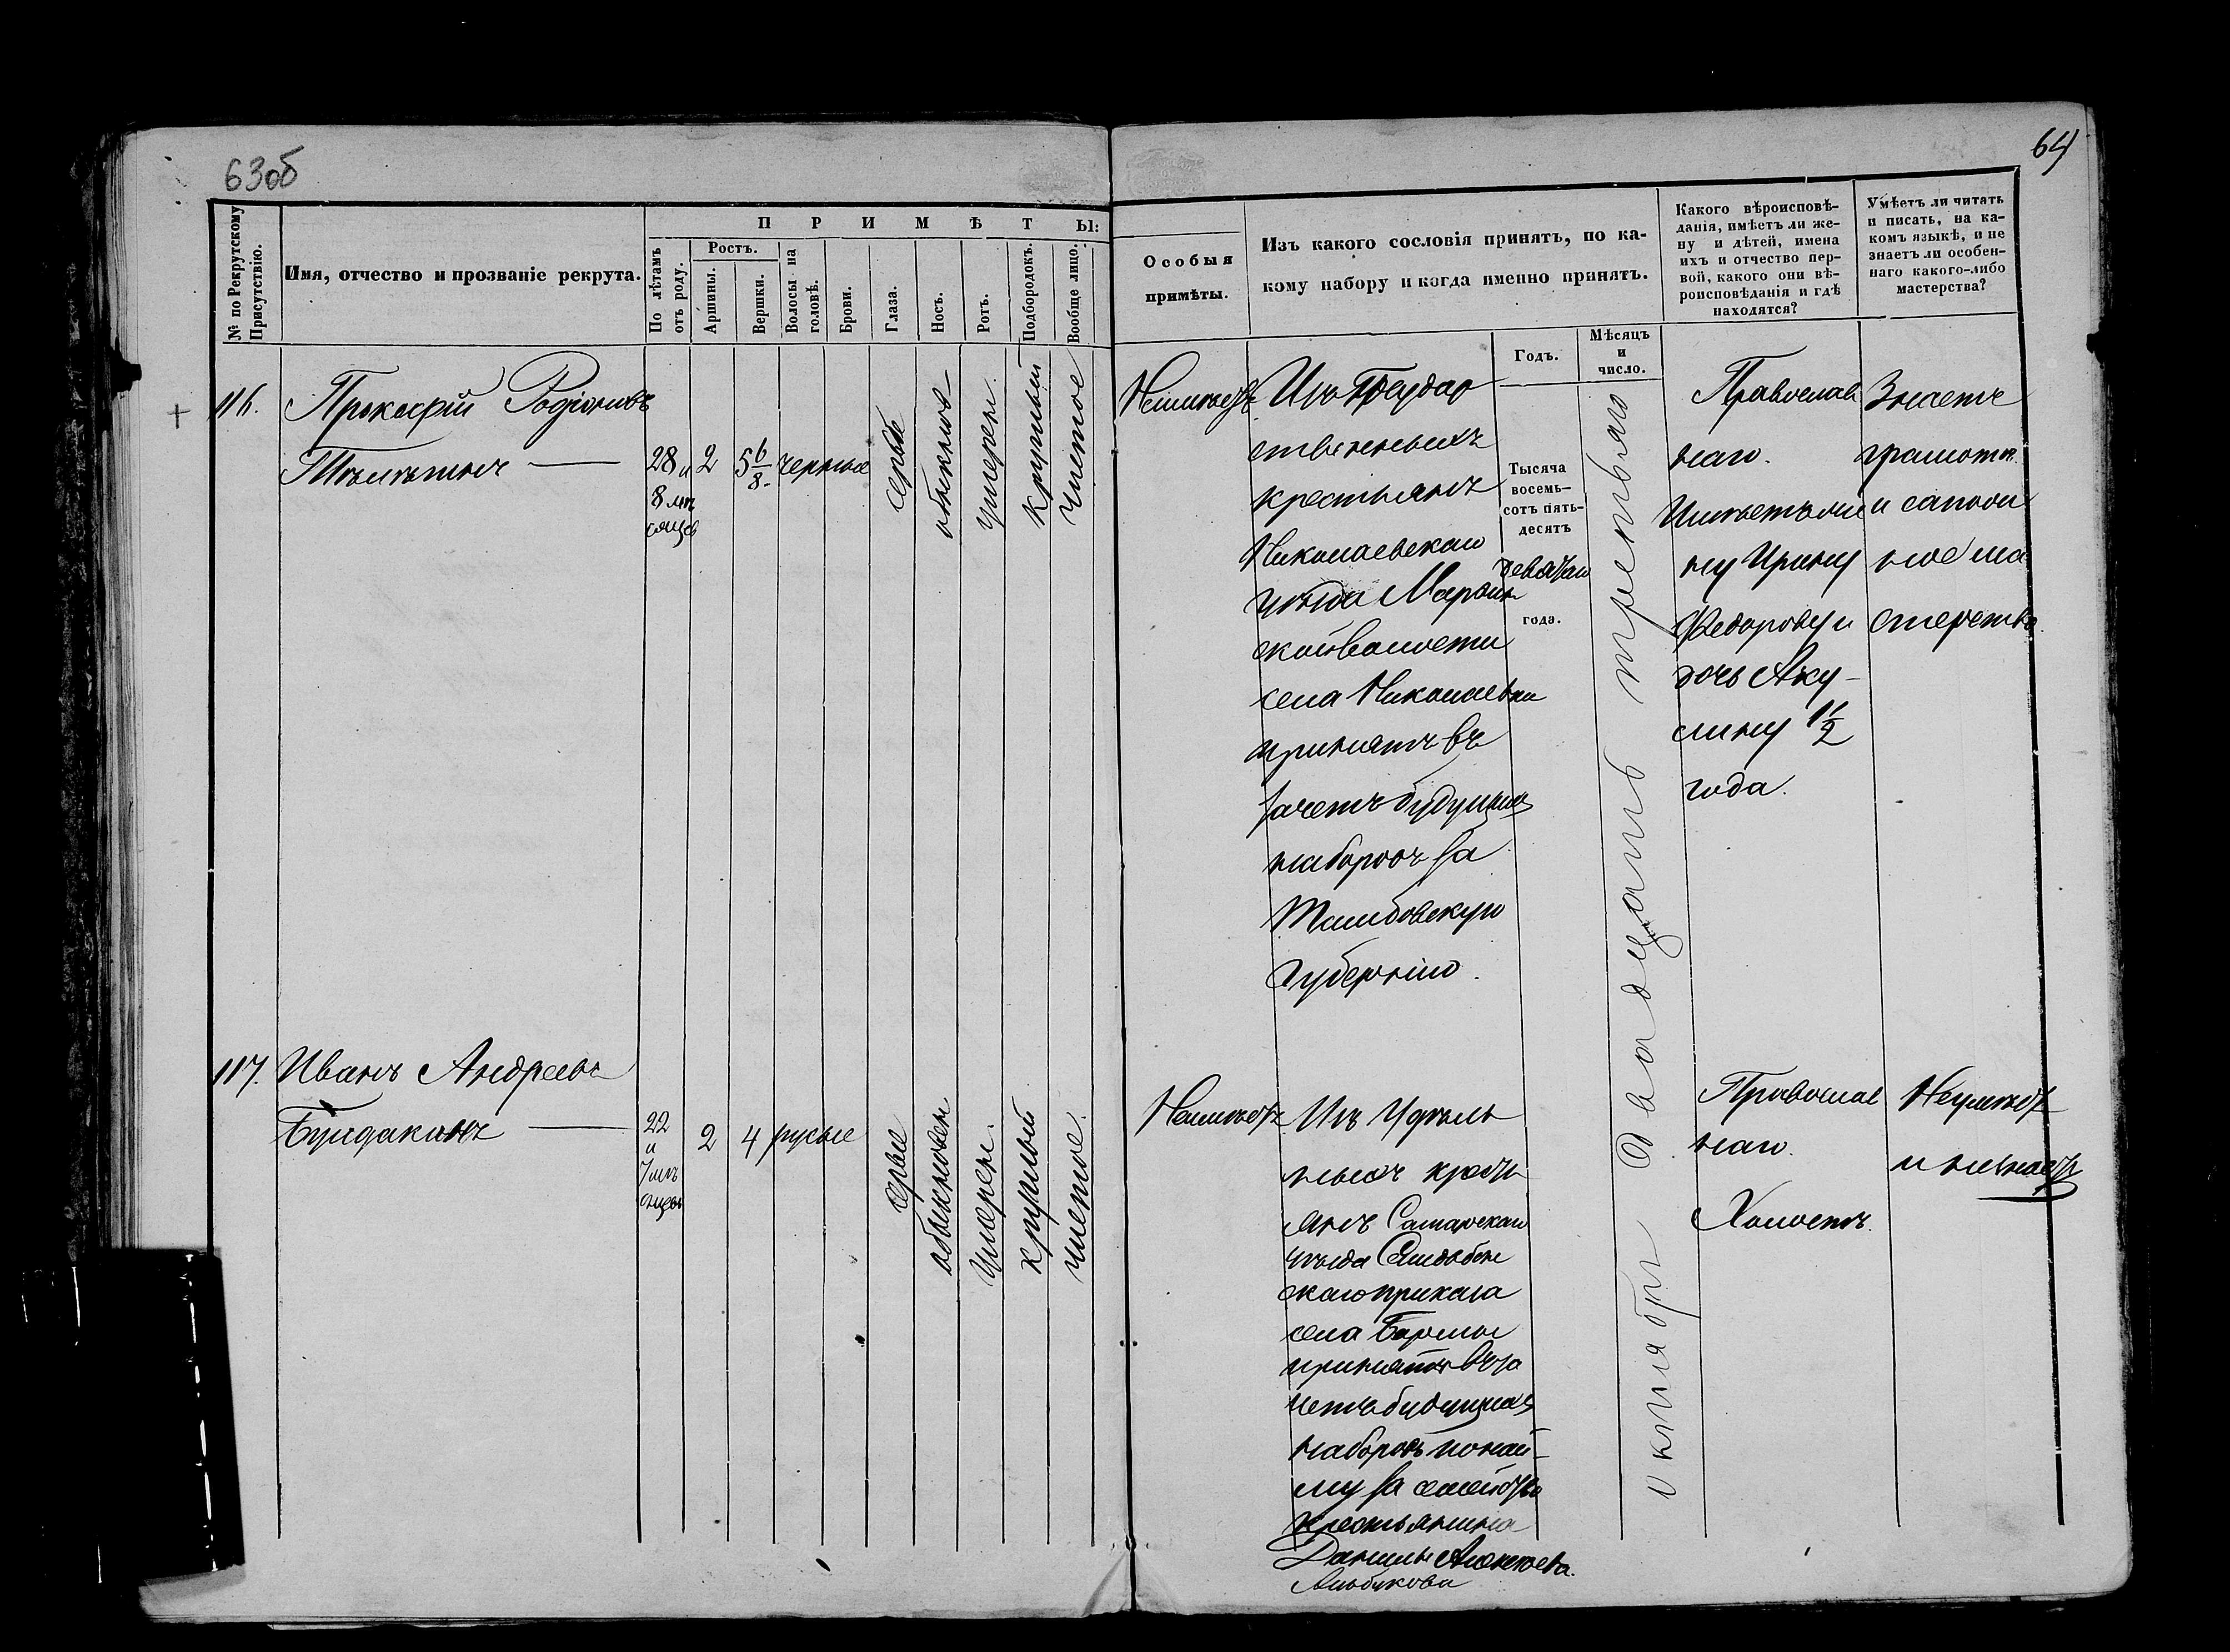 63об
64
№ по Рекрутскому Присутствію.
Имя, отчество и прозваніе рекрута.
П Р И М Ѣ Т Ы:
По лѣтамъ отъ роду.
Ростъ.
Аршины.
Вершки.
Волосы на головѣ.
Брови.
Глаза.
Носъ.
Ротъ.
Подбородокъ.
Вообще лицо.
Особыя
примѣты.
Изъ какого сословія принятъ, по ка-
кому набору и когда именно принятъ.
Годъ.
Мѣсяцъ
и
число.
Какого вѣроисповѣ-
данія, имѣетъ ли же-
ну и дѣтей, имена
ихъ и отчество пер-
вой, какого они вѣ-
роисповѣданія и гдѣ
находятся?
Умѣетъ ли читать
и писать, на ка-
комъ языкѣ, и не
знаетъ ли особен-
наго какого-либо
мастерства?
116.
Прокофій Родіоновъ
28 и
8 мѣ
сяцев
2
5 6/8
черные
серые
обыкновен
умерен.
круглый
чистое
Неимеетъ
Изъ Государ
ственныхъ
крестьянъ
Николаевскаго
уѣзда
ской волости
села Николаевки
принятъ въ
зачетъ будущихъ
наборовъ за
Тамбовскую
Губернію.
Тысяча
восемь-
сотъ пять-
десятъ
девятаго
года.
октября двадцать третьяго
Православ
наго.
Имѣетъ же
ну Ирину
Федорову и
дочь Аку-
лину 1 1/2
года.
Знаетъ
грамоте
и сапож
ное ма
стерство
117.
Иванъ Андреевъ
22
и
7 мѣ
сяцев
2
4
русые
серые
обыкновен
умерен.
круглый
чистое.
Неимѣетъ
Изъ Удѣль
ныхъ кресть
янъ Самарскаго
уѣзда
скаго приказа
села
принятъ въ за
четъ будущихъ
наборовъ по най-
му за семейство
крестьянина
Данилы
Православ
наго.
Холостъ.
Неумѣетъ
и незнаетъ